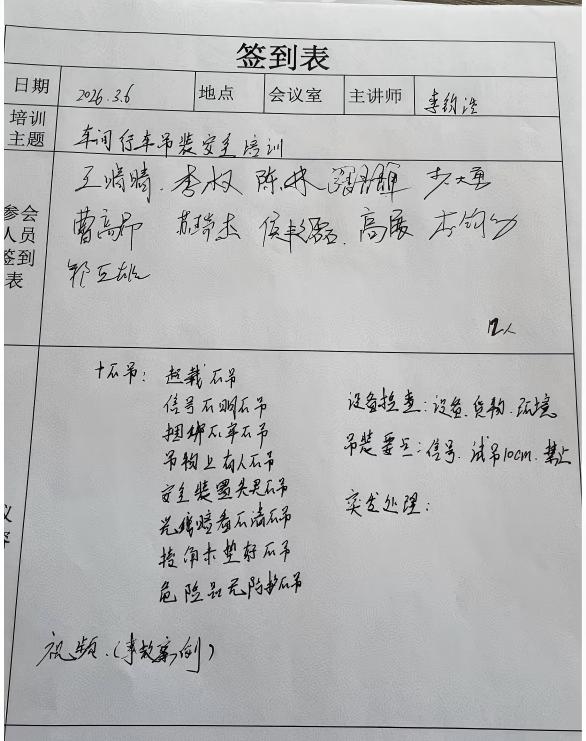 签到表
日期 2026.3.6 地点 会议室 主讲师 李钧浩
培训主题 车间行车吊装安全培训
参会人员签到表
王晴晴 李权 陈林
曹高 苏瑞杰 高展
12人
十不吊：超载不吊
信号不明不吊
捆绑不牢不吊
吊物上有人不吊
安全装置失灵不吊
光线暗看不清不吊
棱角未垫好不吊
危险品无防护不吊
设备检查：设备、货物、环境
吊装要点：信号、试吊10cm、禁止
突发处理：
视频（事故案例）